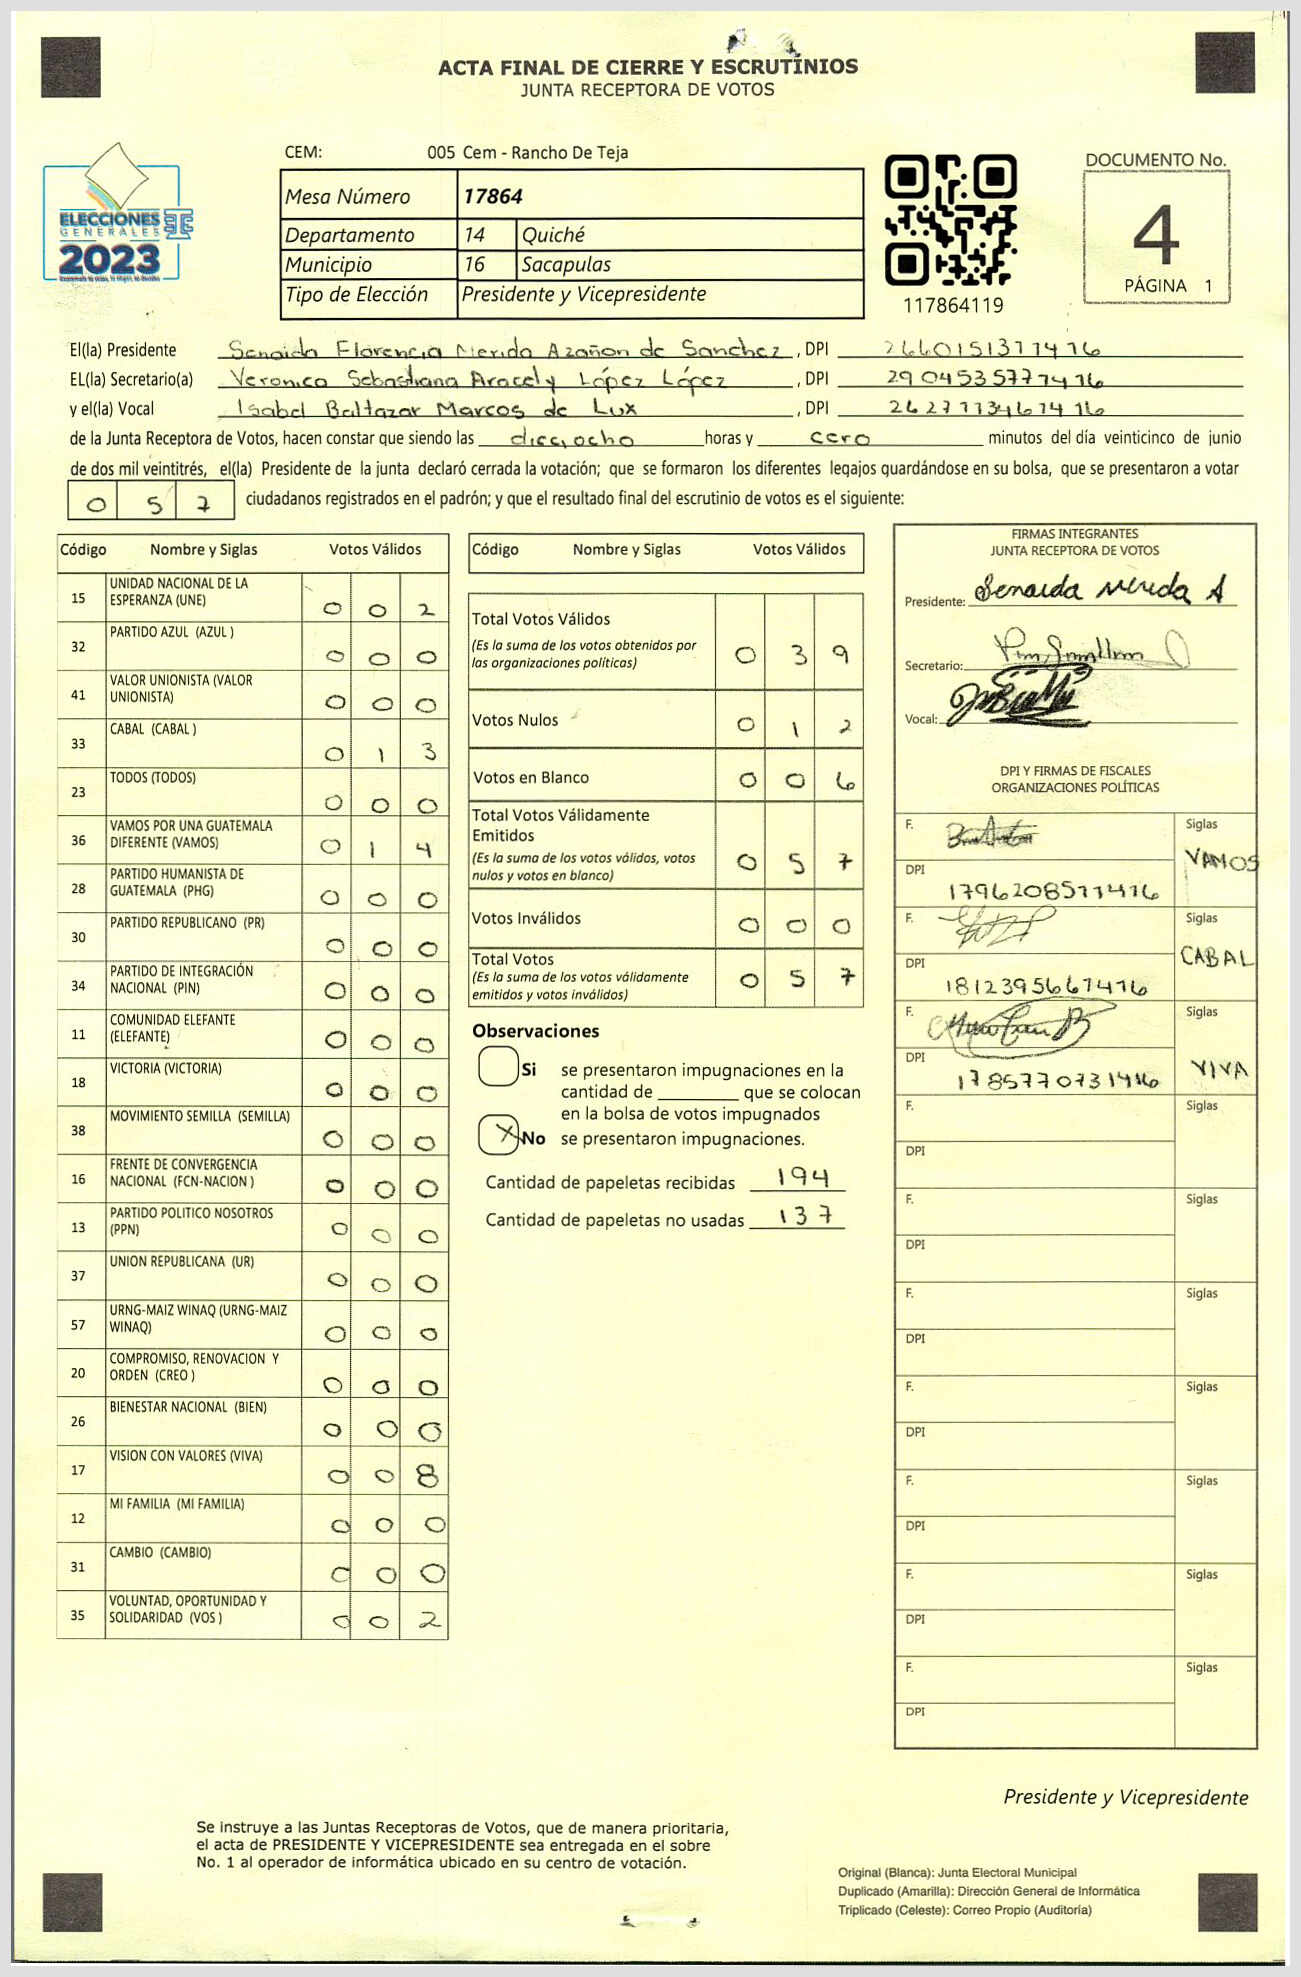 ACTA FINAL DE CIERRE Y ESCRUTINIOS
JUNTA RECEPTORA DE VOTOS
ELECCIONES
GENERALES
2023
CEM: 005 Cem - Rancho De Teja
Mesa Número 17864
Departamento 14 Quiché
Municipio 16 Sacapulas
Tipo de Elección Presidente y Vicepresidente
117864119
DOCUMENTO No.
4
PÁGINA 1
El(la) Presidente Senaida Florencia Merida Azañon de Sanchez, DPI
EL(la) Secretario(a) Veronica Sebastiana Aracely López López, DPI
y el(la) Vocal Isabel Baltazar Marcos de Lux, DPI
de la Junta Receptora de Votos, hacen constar que siendo las dieciocho horas y cero minutos del día veinticinco de junio
de dos mil veintitrés, el(la) Presidente de la junta declaró cerrada la votación; que se formaron los diferentes legajos guardándose en su bolsa, que se presentaron a votar
0 5 7 ciudadanos registrados en el padrón; y que el resultado final del escrutinio de votos es el siguiente:
Código Nombre y Siglas Votos Válidos
15 UNIDAD NACIONAL DE LA
ESPERANZA (UNE) 0 0 2
32 PARTIDO AZUL (AZUL ) 0 0 0
41 VALOR UNIONISTA (VALOR
UNIONISTA) 0 0 0
33 CABAL (CABAL ) 0 1 3
23 TODOS (TODOS) 0 0 0
36 VAMOS POR UNA GUATEMALA
DIFERENTE (VAMOS) 0 1 4
28 PARTIDO HUMANISTA DE
GUATEMALA (PHG) 0 0 0
30 PARTIDO REPUBLICANO (PR) 0 0 0
34 PARTIDO DE INTEGRACIÓN
NACIONAL (PIN) 0 0 0
11 COMUNIDAD ELEFANTE
(ELEFANTE) 0 0 0
18 VICTORIA (VICTORIA) 0 0 0
38 MOVIMIENTO SEMILLA (SEMILLA) 0 0 0
16 FRENTE DE CONVERGENCIA
NACIONAL (FCN-NACION ) 0 0 0
13 PARTIDO POLITICO NOSOTROS
(PPN) 0 0 0
37 UNION REPUBLICANA (UR) 0 0 0
57 URNG-MAIZ WINAQ (URNG-MAIZ
WINAQ) 0 0 0
20 COMPROMISO, RENOVACION Y
ORDEN (CREO ) 0 0 0
26 BIENESTAR NACIONAL (BIEN) 0 0 0
17 VISION CON VALORES (VIVA) 0 0 8
12 MI FAMILIA (MI FAMILIA) 0 0 0
31 CAMBIO (CAMBIO) 0 0 0
35 VOLUNTAD, OPORTUNIDAD Y
SOLIDARIDAD (VOS ) 0 0 2
Código Nombre y Siglas Votos Válidos
Total Votos Válidos
(Es la suma de los votos obtenidos por
las organizaciones políticas) 0 3 9
Votos Nulos 0 1 2
Votos en Blanco 0 0 6
Total Votos Válidamente
Emitidos
(Es la suma de los votos válidos, votos
nulos y votos en blanco) 0 5 7
Votos Inválidos 0 0 0
Total Votos
(Es la suma de los votos válidamente
emitidos y votos inválidos) 0 5 7
Observaciones
Si se presentaron impugnaciones en la
cantidad de ________ que se colocan
en la bolsa de votos impugnados
X No se presentaron impugnaciones.
Cantidad de papeletas recibidas 194
Cantidad de papeletas no usadas 137
FIRMAS INTEGRANTES
JUNTA RECEPTORA DE VOTOS
Presidente: Senaida Merida A
Secretario:
Vocal:
DPI Y FIRMAS DE FISCALES
ORGANIZACIONES POLÍTICAS
F. Siglas
VAMOS
DPI
F. Siglas
CABAL
DPI
F. Siglas
VIVA
DPI
F. Siglas
DPI
F. Siglas
DPI
F. Siglas
DPI
F. Siglas
DPI
F. Siglas
DPI
F. Siglas
DPI
F. Siglas
DPI
Presidente y Vicepresidente
Se instruye a las Juntas Receptoras de Votos, que de manera prioritaria,
el acta de PRESIDENTE Y VICEPRESIDENTE sea entregada en el sobre
No. 1 al operador de informática ubicado en su centro de votación.
Original (Blanca): Junta Electoral Municipal
Duplicado (Amarilla): Dirección General de Informática
Triplicado (Celeste): Correo Propio (Auditoría)